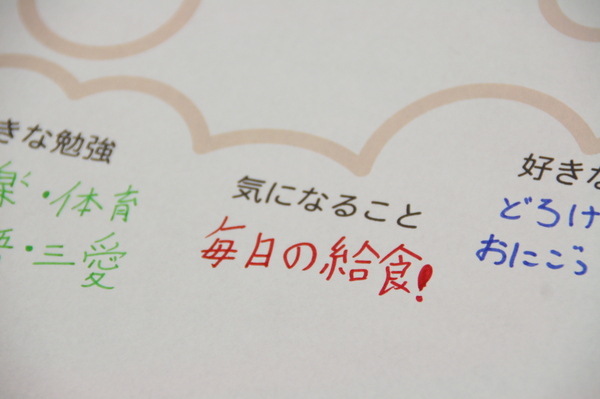 きな勉強
楽・体育
語・三愛
気になること
毎日の給食!
好きな
どろけ
おにごっ